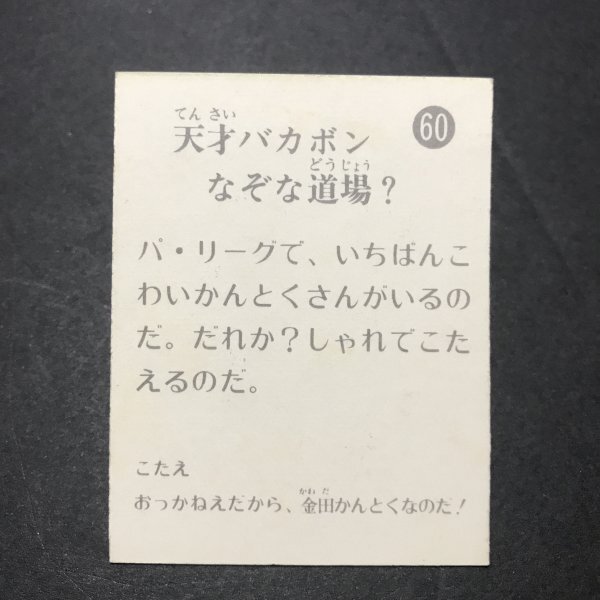 てんさい
天才バカボン
60
どうじょう
なぞな道場？
パ・リーグで、いちばんこ
わいかんとくさんがいるの
だ。だれか？しゃれでこた
えるのだ。
こたえ
かねだ
おっかねえだから、金田かんとくなのだ！